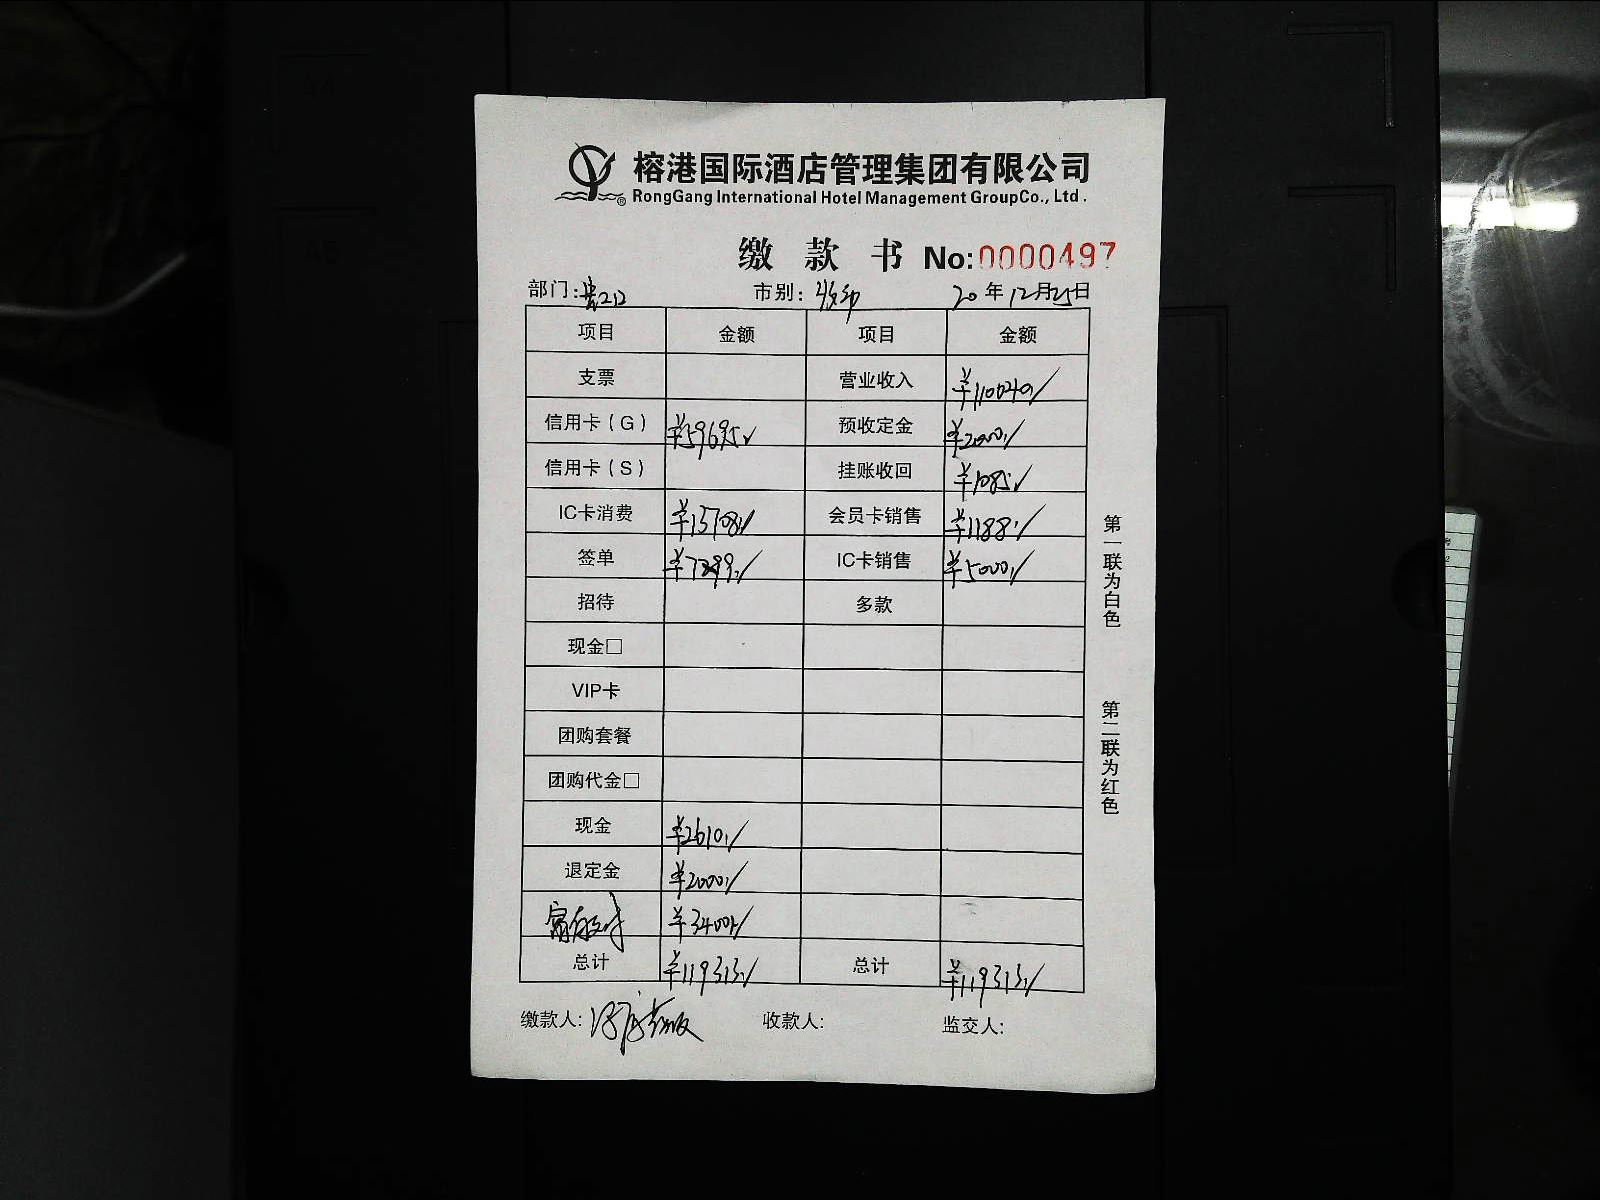 榕港国际酒店管理集团有限公司
RongGang International Hotel Management GroupCo., Ltd.
缴款书 No:0000497
部门: 市别: 20年12月25日
项目 金额 项目 金额
支票 营业收入 ¥110040
信用卡(G) ¥59695 预收定金 ¥2000
信用卡(S) 挂账收回 ¥1085
IC卡消费 ¥13708 会员卡销售 ¥1188
签单 ¥7299 IC卡销售 ¥5000
招待 多款
现金□
VIP卡
团购套餐
团购代金□
现金 ¥2610
退定金 ¥2000
¥34001
总计 ¥119313 总计 ¥119313
缴款人: 收款人: 监交人:
第一联为白色
第二联为红色